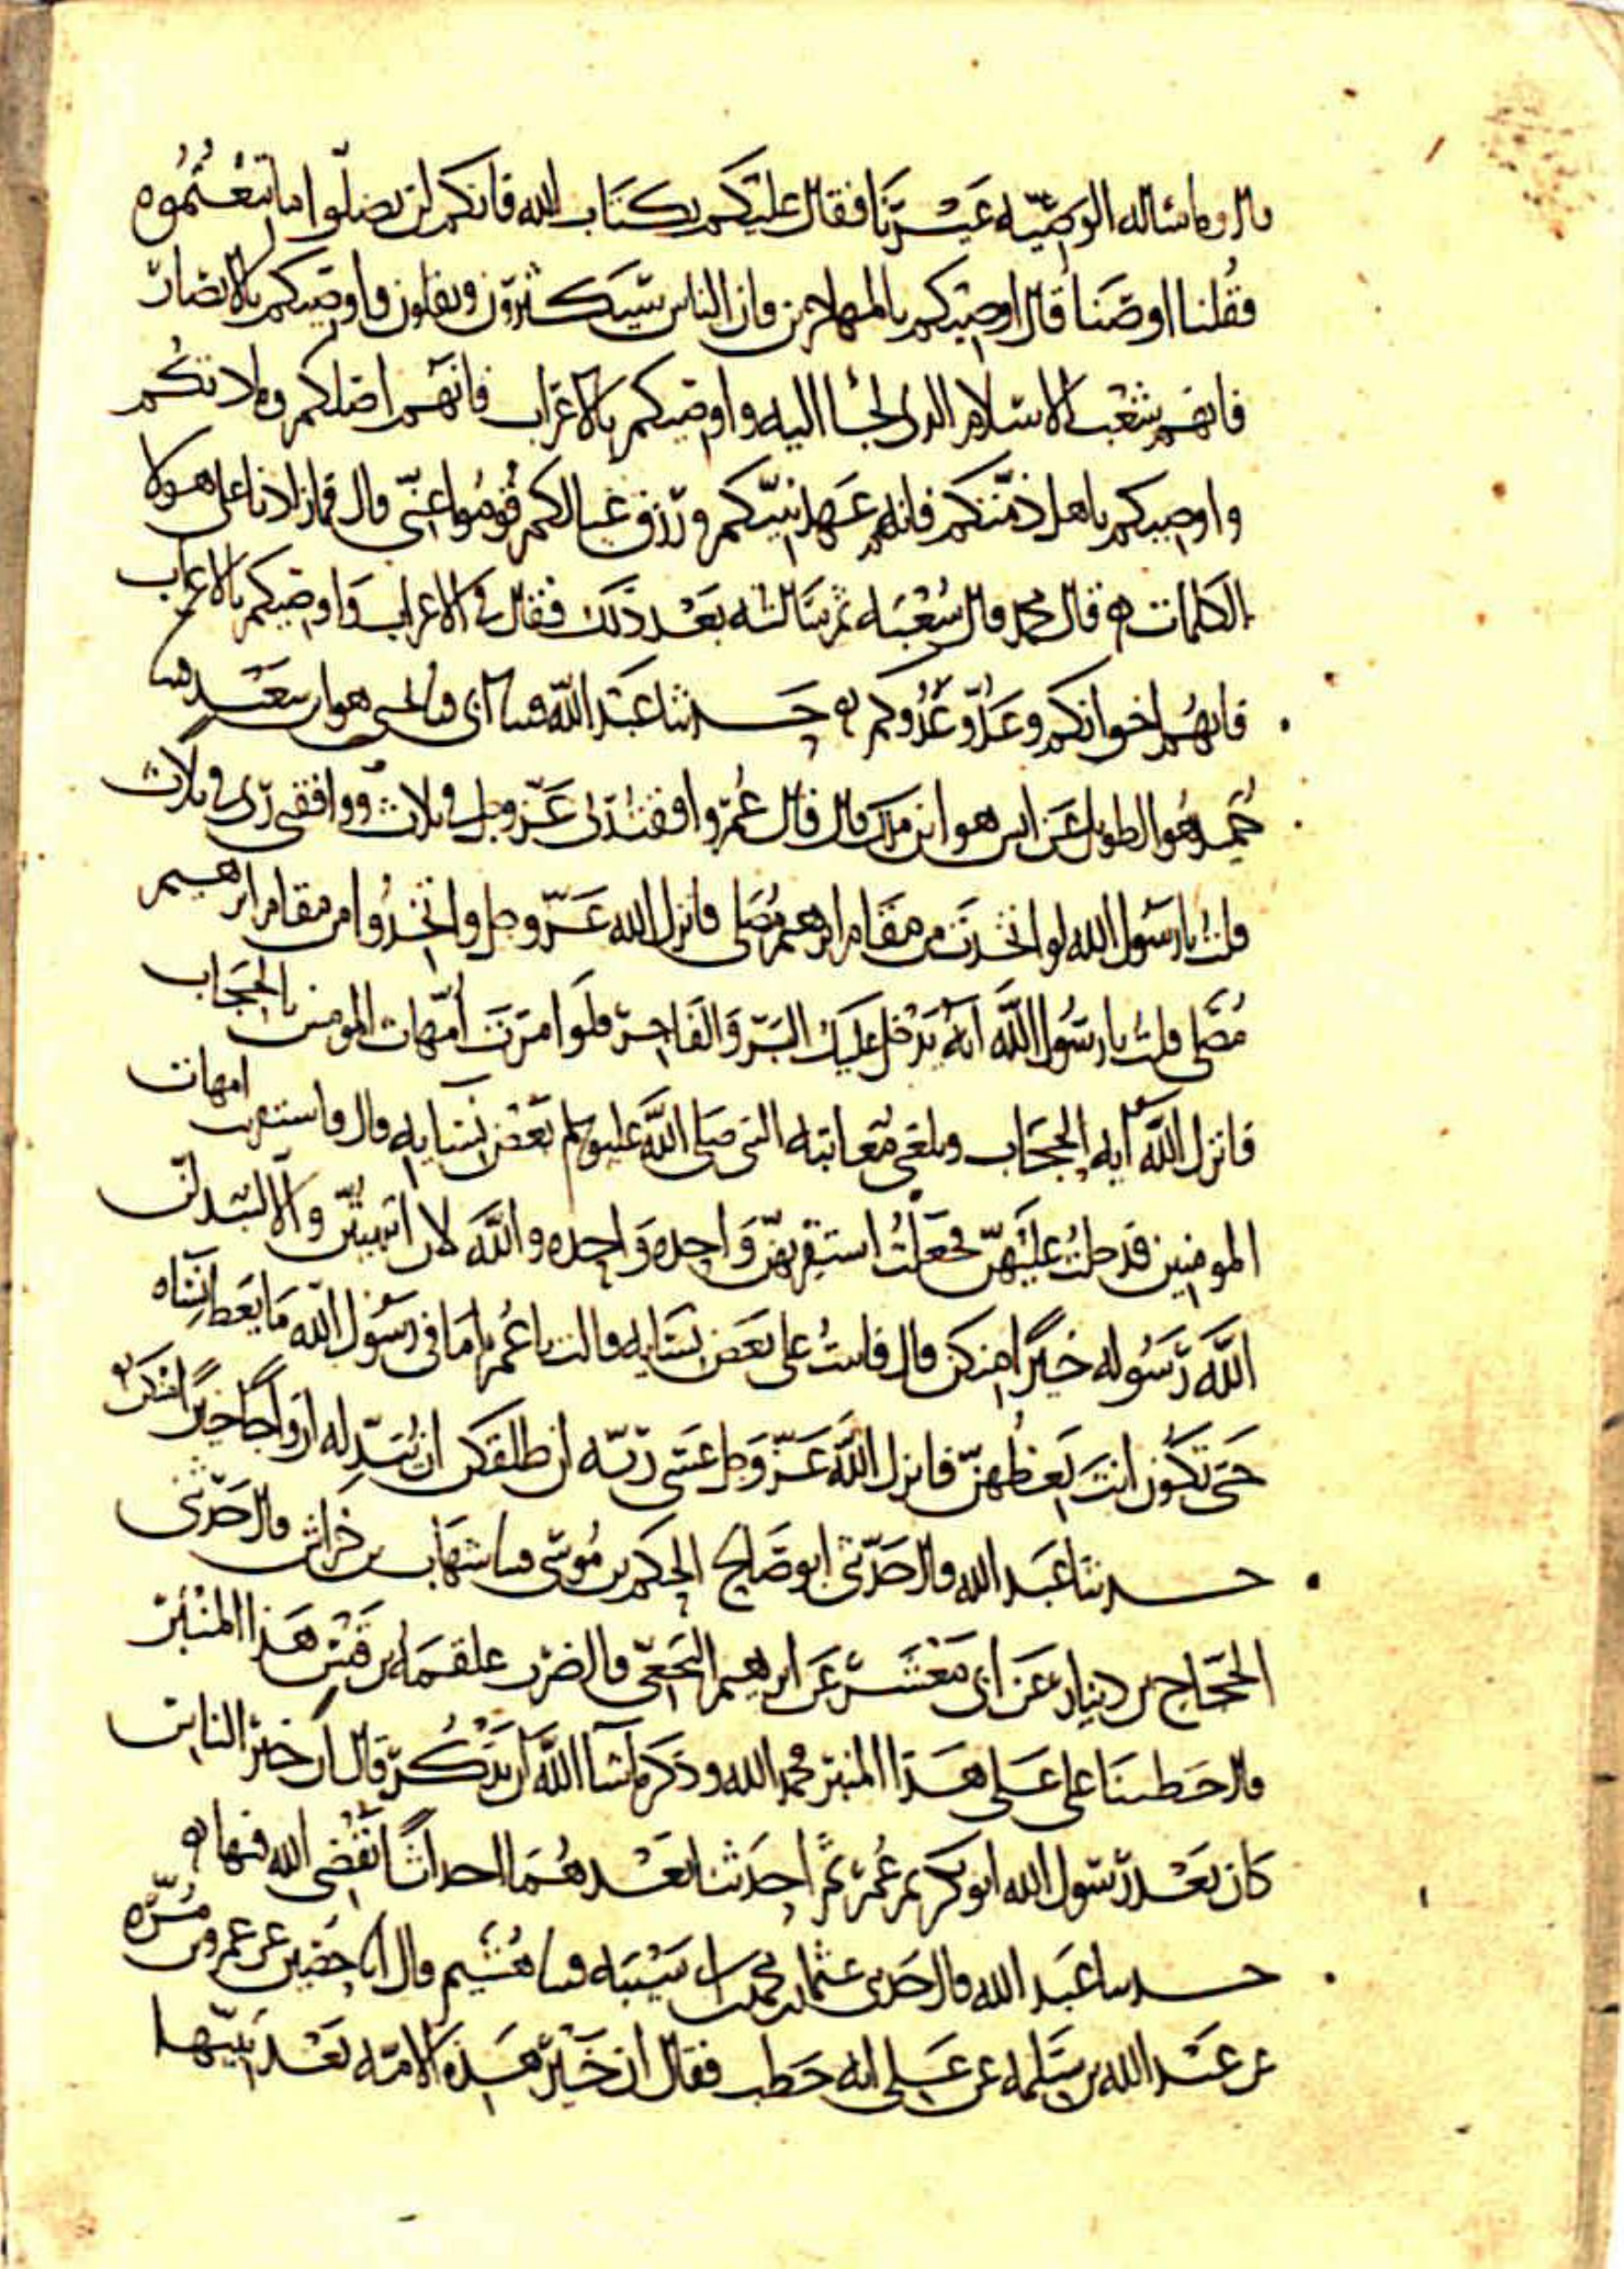 قال وما سأله الوصية غيرنا فقال عليكم بكتاب الله فانكم لن تضلوا ما اتبعتموه
فقلنا اوصنا قال اوصيكم بالمهاجرين فان الناس سيكثرون ويقلون واوصيكم بالانصار
فانهم شعب الاسلام الذي لجأ اليه واوصيكم بالاعراب فانهم اصلكم ومادتكم
واوصيكم باهل ذمتكم فانهم عهد نبيكم ورزق عيالكم قوموا عني قال فما زادنا على هولا
الكلمات قال محمد قال شعبة ثم سالته بعد ذلك فقال في الاعراب واوصيكم بالاعراب
فانهم اخوانكم وعدو عدوكم حدثنا عبد الله ثنا ابي ثنا يحيى هو ابن سعيد ثنا
حميد هو الطويل عن انس هو ابن ملك قال قال عمر وافقت ربي عز وجل في ثلاث ووافقني ربي في ثلاث
قلت يا رسول الله لو اتخذت من مقام ابرهيم مصلى فانزل الله عز وجل واتخذوا من مقام ابرهيم
مصلى قلت يا رسول الله انه يدخل عليك البر والفاجر فلو امرت امهات المومنين بالحجاب
فانزل الله آية الحجاب وبلغني معاتبة النبي صلى الله عليه وسلم بعض نسايه قال فاستقريت امهات
المومنين فدخلت عليهن فجعلت استقريهن واحدة واحدة والله لان انتهيتن والا ليبدلن
الله رسوله خيرا منكن قال فاتيت على بعض نسايه قالت يا عمر اما في رسول الله ما يعظ نساه
حتى تكون انت تعظهن فانزل الله عز وجل عسى ربه ان طلقكن ان يبدله ازواجا خيرا منكن
حدثنا عبد الله قال حدثني ابو صالح الحكم بن موسى ثنا شهاب بن خراش قال حدثني
الحجاج بن دينار عن ابي معشر عن ابرهيم النخعي قال ضرب علقمة بن قيس هذا المنبر
قال خطبنا علي على هذا المنبر فحمد الله وذكر ما شا الله ان يذكر قال ان خير الناس
كان بعد رسول الله ابو بكر ثم عمر ثم احدثنا بعدهما احداثا يقضي الله فيها
حدثنا عبد الله قال حدثني عثمان بن محمد بن ابي شيبة ثنا هشيم قال انا حصين عن عمرو بن مرة
عن عبد الله بن سلمة عن علي انه خطب فقال ان خير هذه الامة بعد نبيها